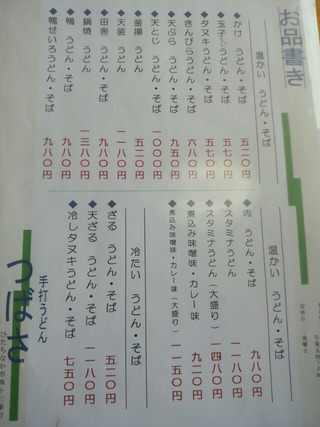 お品書き
温かい うどん・そば
◆かけ うどん・そば 五二〇円
◆玉子とじうどん・そば 五七〇円
◆タヌキうどん・そば 五七〇円
◆きんぴらうどん・そば 六八〇円
◆天ぷら うどん・そば 九五〇円
◆天とじ うどん・そば 一〇〇〇円
◆釜揚 うどん 五二〇円
◆天釜 うどん 一一八〇円
◆田舎 うどん・そば 九八〇円
◆鍋焼 うどん 一三八〇円
◆鴨 うどん・そば 九八〇円
◆鴨せいろうどん・そば 九八〇円
温かい うどん・そば
◆肉 うどん・そば 九八〇円
◆スタミナうどん 一一八〇円
◆スタミナうどん(大盛り) 一四八〇円
◆煮込み味噌味・カレー味 九二〇円
◆煮込み味噌味・カレー味(大盛り) 一一五〇円
冷たい うどん・そば
◆ざる うどん・そば 五二〇円
◆天ざる うどん・そば 一一八〇円
◆冷しタヌキうどん・そば 七五〇円
手打うどん
つばさ